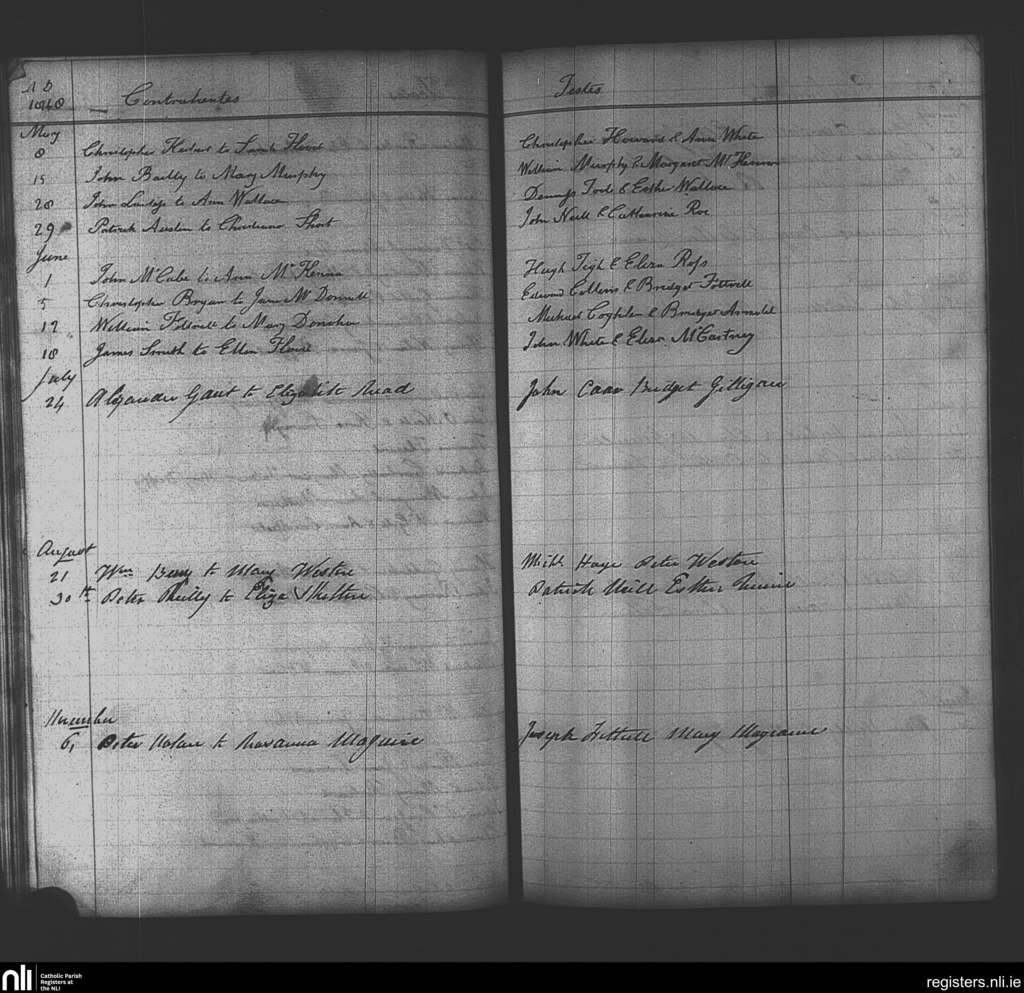 A D
1848 Contrahentes Testes
May
8 Christopher Herbert to Sarah Flood Christopher Howard & Ann White
15 John Bailly to Mary Murphy William Murphy & Margaret McKenna
28 John to Ann Wallace Dennys & Esther Wallace
29 Patrick Austin to Christiana Short John Neill & Catherine Roe
June
1 John McCabe to Ann McKenna Hugh Tigh & Eliza Ross
5 Christopher Bryan to Jane McDonnell Edward Collins & Bridget
12 William to Mary Donohu Michael Coghlan & Bridget Arnold
18 James Smith to Ellen John White & Eliza McCartney
July
24 Alexander Gaut to Elizabeth John Bridget Gilligan
August
21 Wm to Mary Weston Michl Haye Peter Weston
30th Peter Reilly to Eliza Skelton Patrick Neill Esther
November
6 Peter Nolan to Maguire Joseph Mary
nli
Catholic Parish
Registers at
the NLI
registers.nli.ie